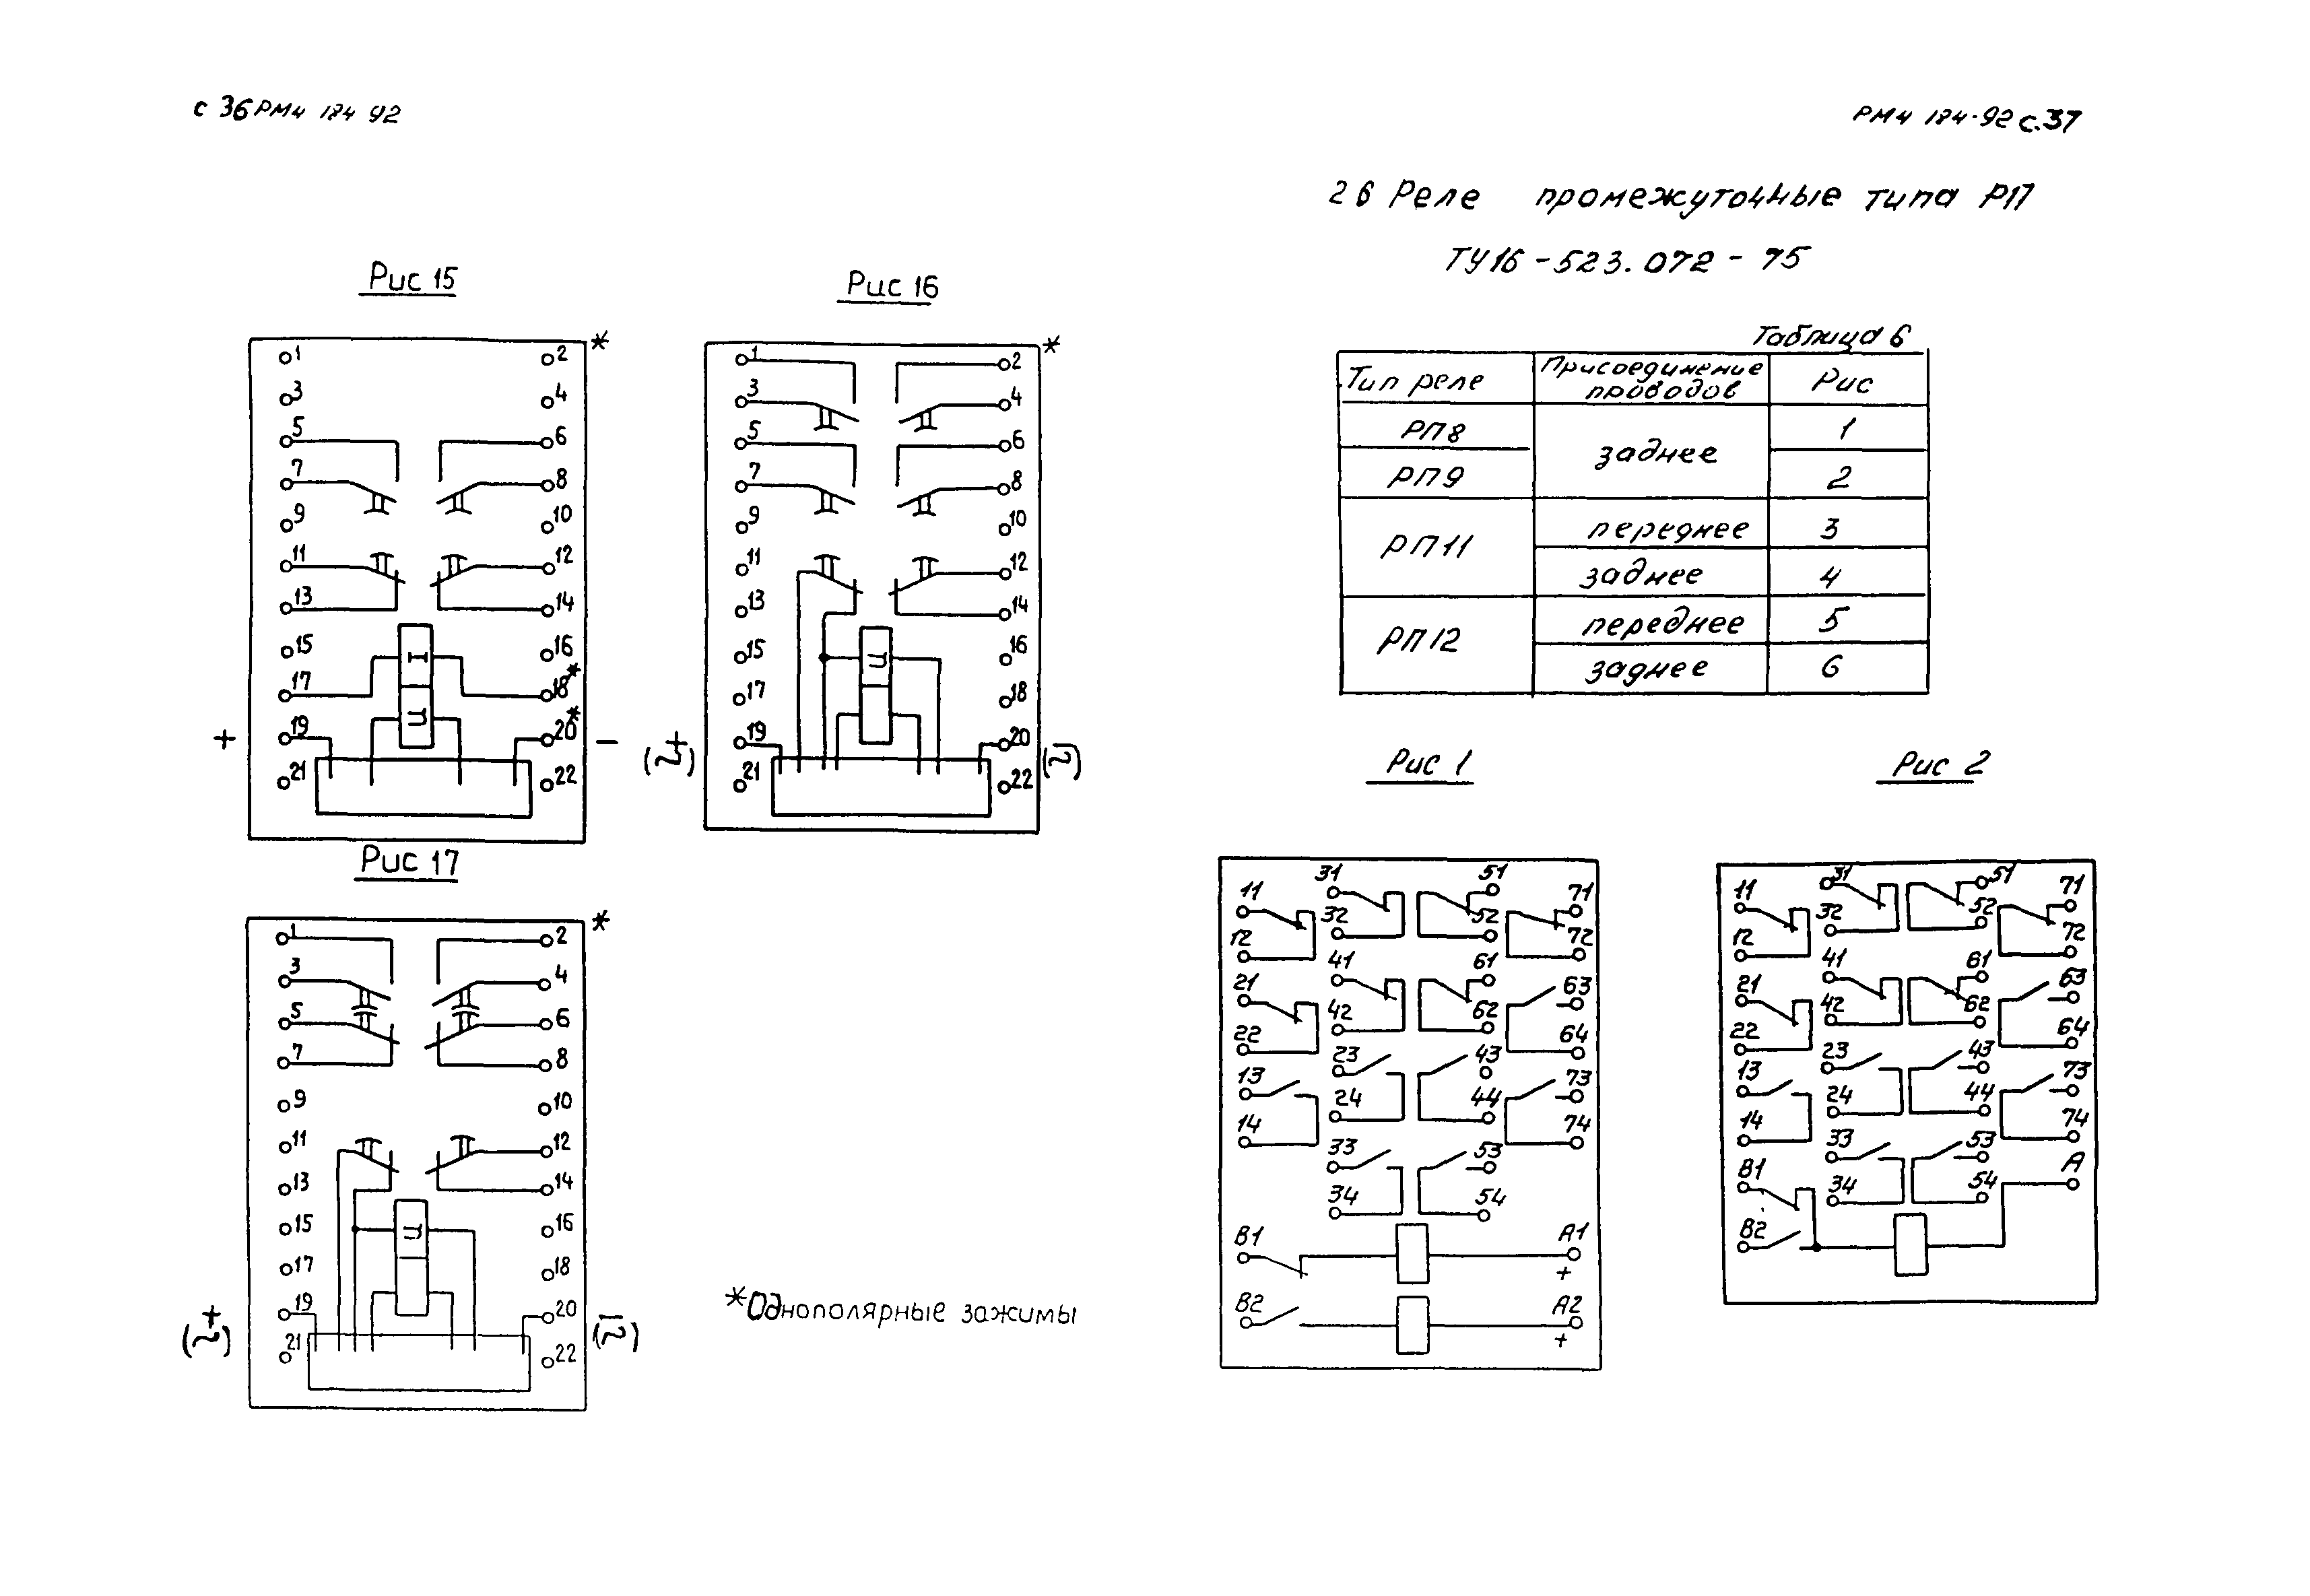 с 36 РМ4 184 92
Рис 15
1 2 *
3 4
5 6
7 8
9 10
11 12
13 14
15 16
I
17 18*
U
+ 19 20* −
21 22
Рис 16
1 2 *
3 4
5 6
7 8
9 10
11 12
13 14
15 U 16
17 18
+ 19 20 −
(~) 21 22 (~)
Рис 17
1 2 *
3 4
5 6
7 8
9 10
11 12
13 14
15 U 16
17 18
+ 19 20 −
(~) 21 22 (~)
*Однополярные зажимы
РМ4 184-92 с.37
2 6 Реле промежуточные типа РП
ТУ16-523.072-75
Таблица 6
Тип реле Присоединение проводов Рис
РП8 заднее 1
РП9 2
РП11 переднее 3
заднее 4
РП12 переднее 5
заднее 6
Рис 1
31 51
11 71
32 52
12 72
41 61
21 63
42 62
22 64
23 43
13 73
24 44
14 74
33 53
34 54
В1 А1
+
В2 А2
+
Рис 2
31 51
11 71
32 52
12 72
41 61
21 63
42 62
22 64
23 43
13 73
24 44
14 74
33 53
В1 А
34 54
В2